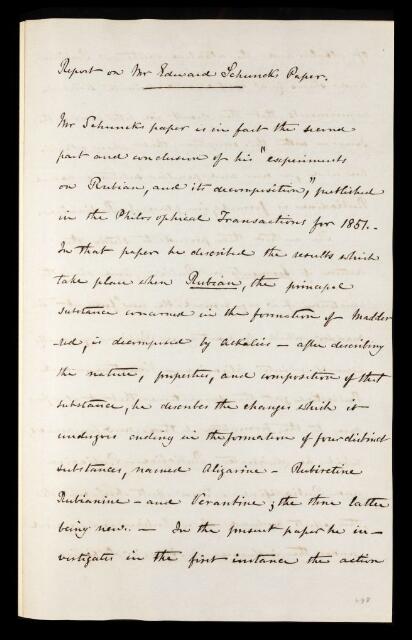 Report on Mr Edward Schuncks Paper.
Mr Schuncks paper is in fact the second
part and conclusion of his "experiments
on Rubian, and its decomposition," published
in the Philosophical Transactions for 1851.
In that paper he described the results which
take place when Rubian, the principal
substance concerned in the formation of Madder
-red, is decomposed by alkalies - after describing
the nature, properties, and composition of that
substance, he describes the changes which it
undergoes ending in the formation of four distinct
substances, named Alizarine - Rubiretine
Rubianine - and Verantine; the three latter
being new. - In the present paper he in-
vestigates in the first instance the action